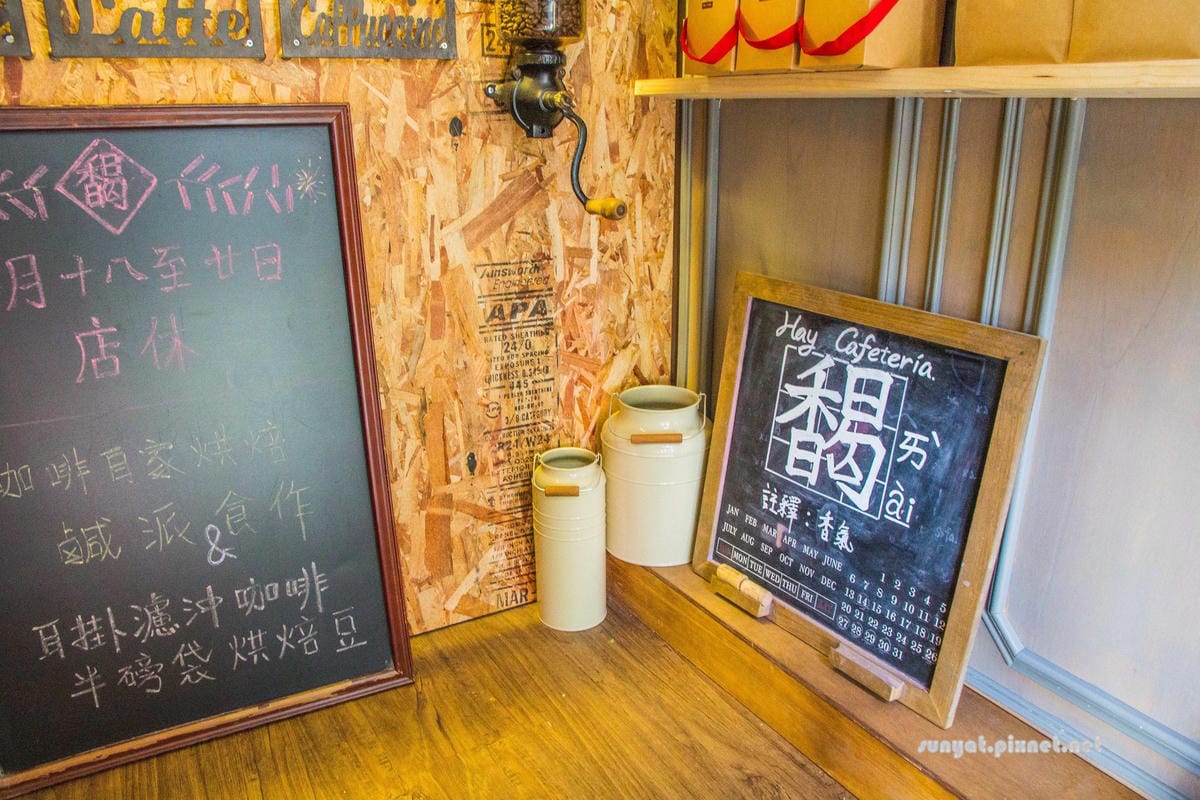 Latte
Cappuccino
馤
月十八至廿日
店休
咖啡自家烘焙
鹹派&食作
耳掛濾沖咖啡
半磅袋烘焙豆
Ainsworth
Engineered
APA
RATED SHEATHING
24/0
SIZED FOR SPACING
EXPOSURE 1
Hay Cafeteria.
馤
ㄞˋ
ài
註釋：香氣
JAN FEB MAR APR MAY JUNE
JULY AUG SEP OCT NOV DEC
MON TUE WED THU FRI SAT
1 2 3 4 5
6 7 8 9 10 11 12
13 14 15 16 17 18 19
20 21 22 23 24 25 26
27 28 29 30 31
sunyat.pixnet.net